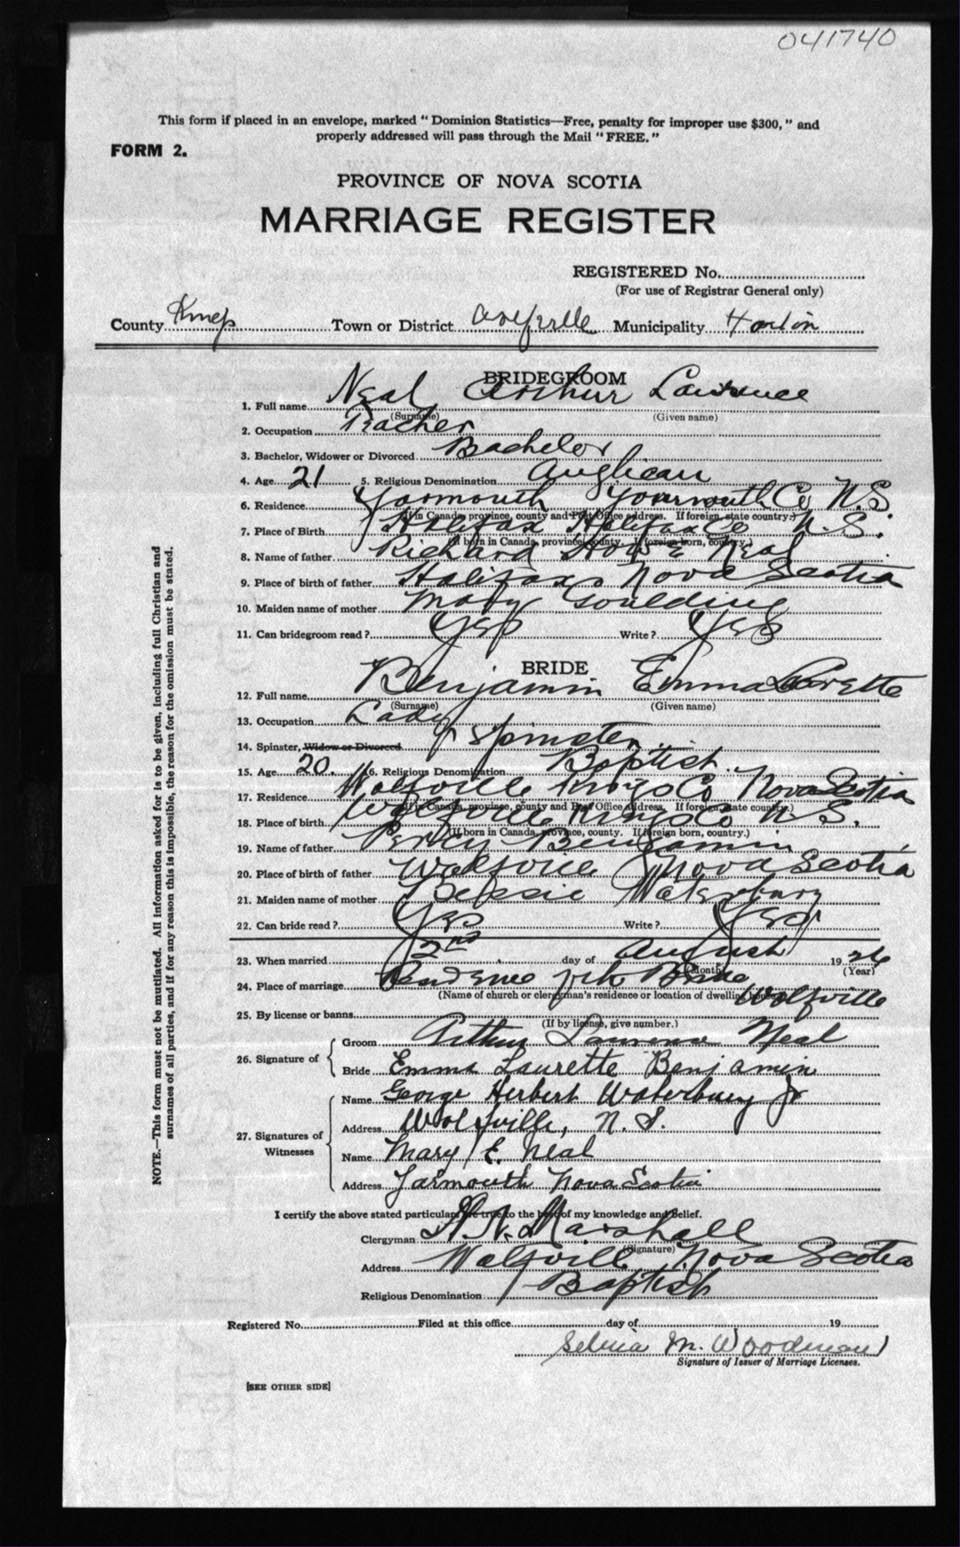 041740
This form if placed in an envelope, marked "Dominion Statistics—Free, penalty for improper use $300," and
properly addressed will pass through the Mail "FREE."
FORM 2.
PROVINCE OF NOVA SCOTIA
MARRIAGE REGISTER
REGISTERED No.
(For use of Registrar General only)
County Kings Town or District Municipality Horton
BRIDEGROOM
1. Full name Neal Arthur Lawrence
(Surname) (Given name)
2. Occupation Teacher
3. Bachelor, Widower or Divorced Bachelor
4. Age 21 5. Religious Denomination Anglican
6. Residence Yarmouth Yarmouth Co N.S.
(If in Canada, province, county and Post Office address. If foreign, state country.)
7. Place of Birth Halifax Halifax Co N.S.
(If born in Canada, province, county. If foreign born, country.)
8. Name of father Richard Neal
9. Place of birth of father Halifax Nova Scotia
10. Maiden name of mother Mary Goulding
11. Can bridegroom read? Yes Write? Yes
BRIDE
12. Full name Benjamin Emma
(Surname) (Given name)
13. Occupation Lady
14. Spinster, Widow or Divorced Spinster
15. Age 20. 16. Religious Denomination Baptist
17. Residence Wolfville Kings Co Nova Scotia
(If in Canada, province, county and Post Office Address. If foreign, state country.)
18. Place of birth Wolfville Kings Co N.S.
(If born in Canada, province, county. If foreign born, country.)
19. Name of father Percy Benjamin
20. Place of birth of father Wolfville Nova Scotia
21. Maiden name of mother Bessie Waterbury
22. Can bride read? Yes Write? Yes
23. When married 2nd day of August 1926
(Month) (Year)
24. Place of marriage Residence of the Bride Wolfville
(Name of church or clergyman's residence or location of dwelling house)
25. By license or banns
(If by license, give number.)
26. Signature of Groom Arthur Lawrence Neal
Bride Emma Laurette Benjamin
27. Signatures of Witnesses Name George Herbert Waterbury Jr
Address Wolfville, N. S.
Name Mary E. Neal
Address Yarmouth Nova Scotia
I certify the above stated particulars are true to the best of my knowledge and belief.
Clergyman Marshall
(Signature)
Address Wolfville Nova Scotia
Religious Denomination Baptist
Registered No. Filed at this office day of 19
M. Woodman
Signature of Issuer of Marriage Licenses.
[SEE OTHER SIDE]
NOTE.—This form must not be mutilated. All information asked for is to be given, including full Christian and
surnames of all parties, and if for any reason this is impossible, the reason for the omission must be stated.